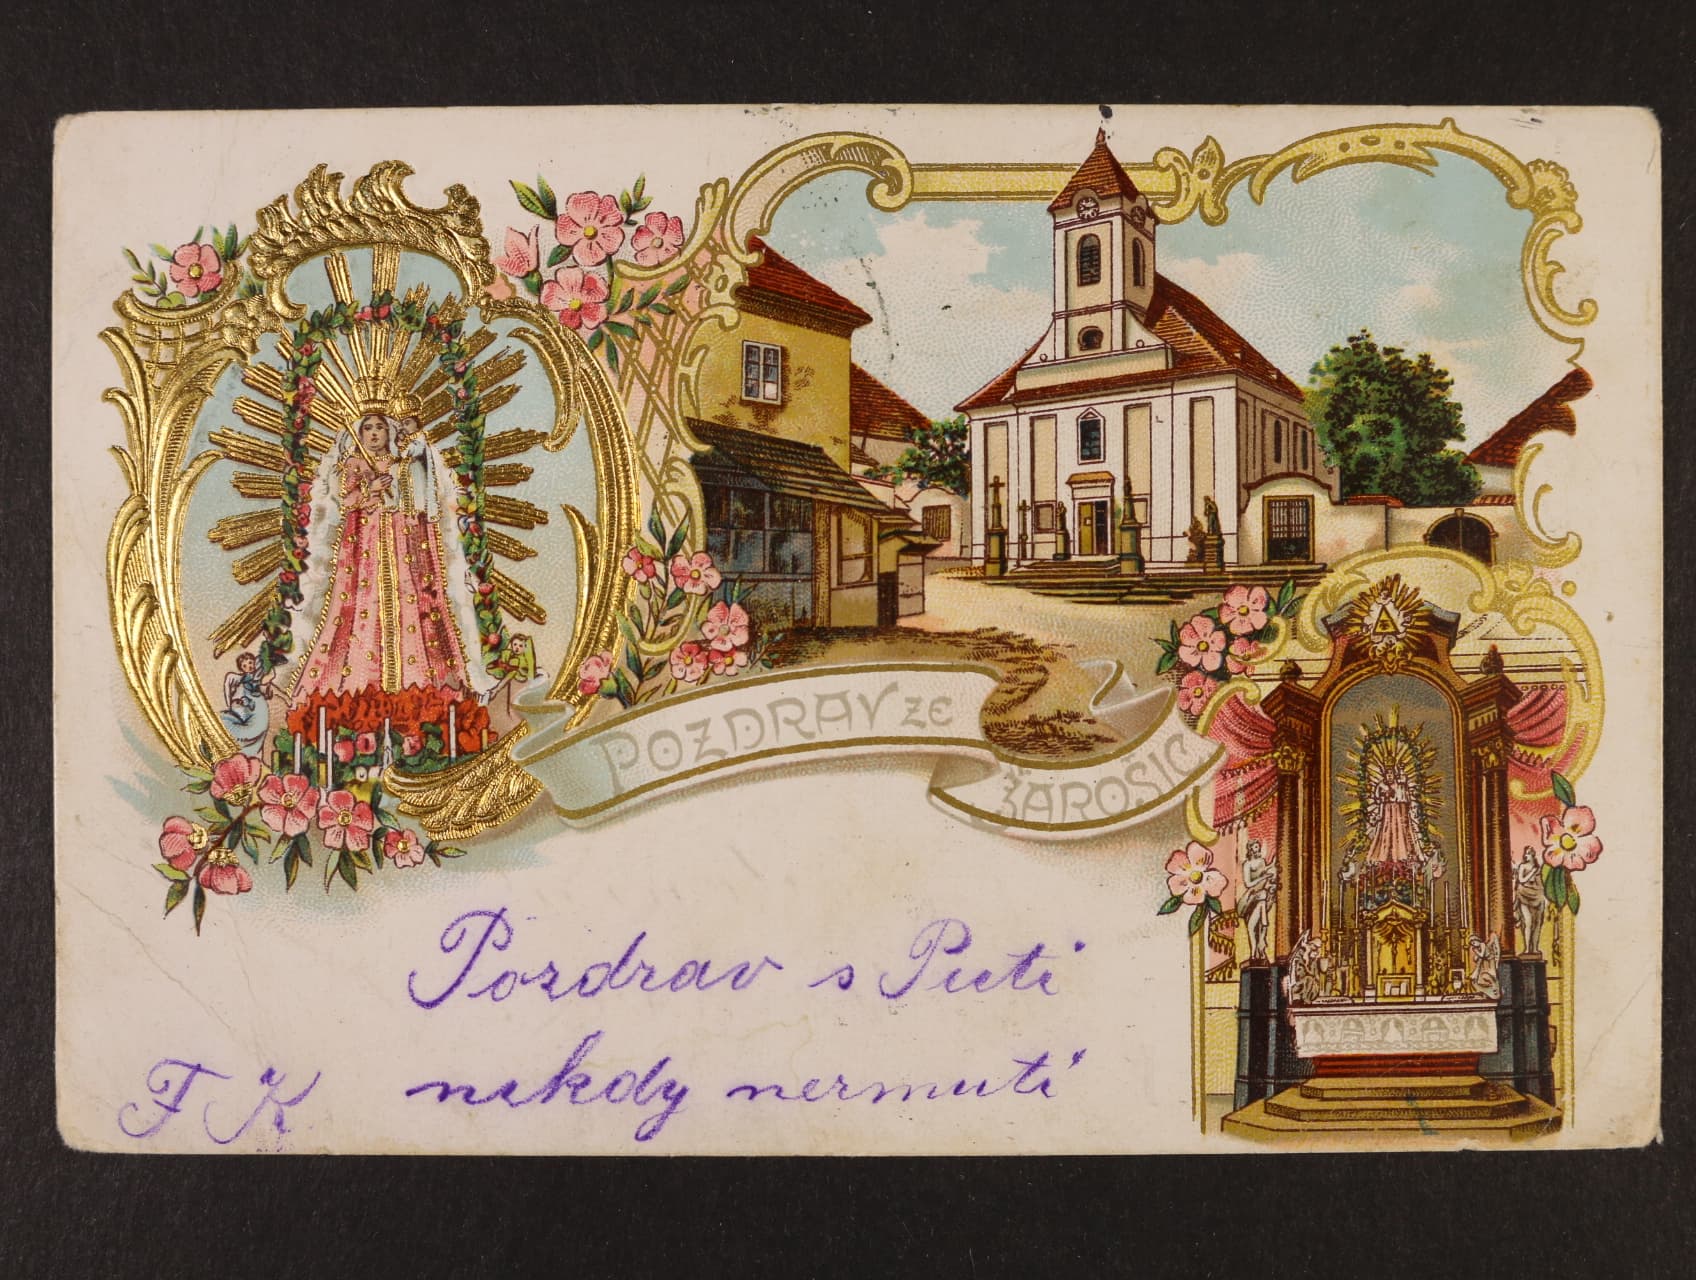 POZDRAV ZE
ŽAROŠIC
Pozdrav s Puti
F K nikdy nermuti